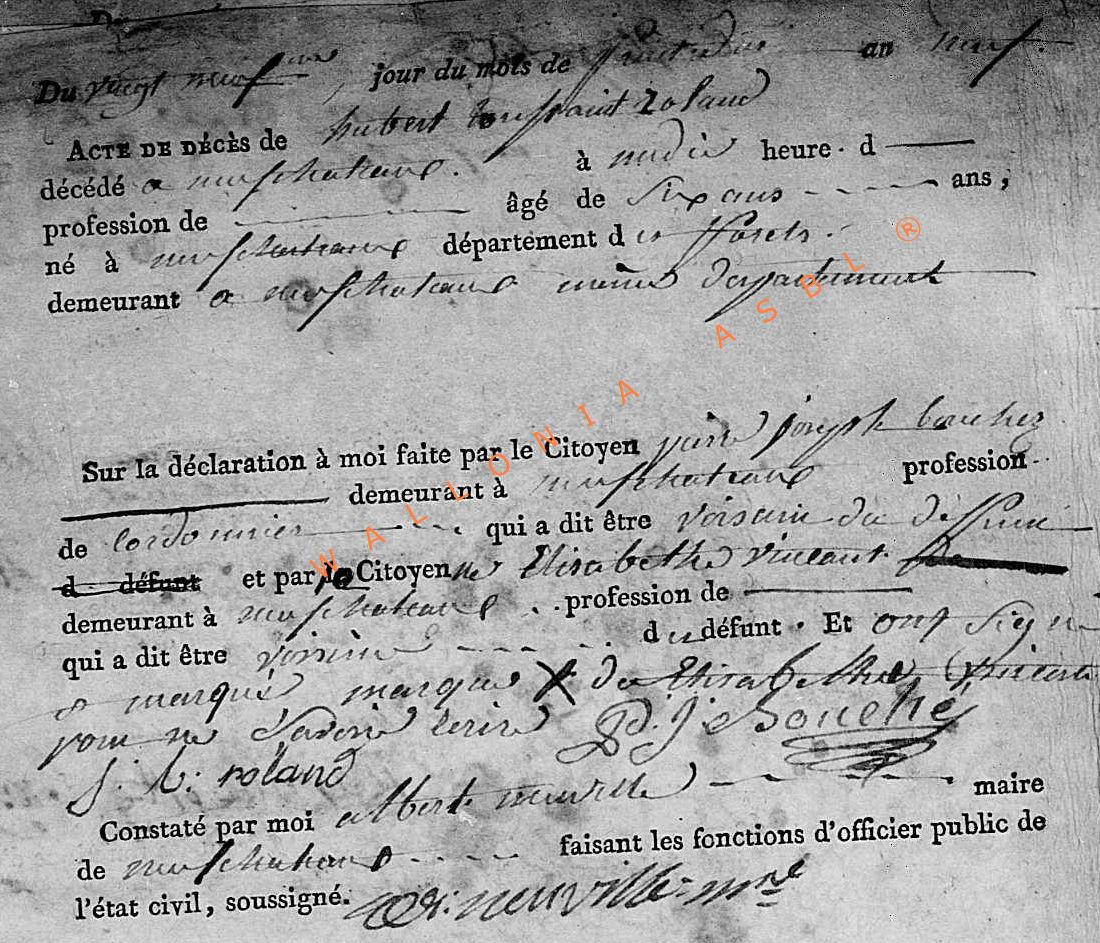 Du vingt neuf jour du mois de an neuf.
ACTE DE DÉCÈS de hubert toussaint roland
décédé a neufchateau. à midi heure. d
profession de âgé de six ans ans,
né à neufchateau département des fforets.
demeurant a neufchateau même departement
Sur la déclaration à moi faite par le Citoyen pierre joseph bouchez
demeurant à neufchateau profession
de cordonnier qui a dit être voisin du deffunt
d défunt et par le Citoyenne Elisabethe vincent
demeurant à neufchateau profession de
qui a dit être voisine du défunt. Et ont signe
marqué marque X de Elisabethe vincent
pour ne savoir ecrire P. J. Bouché
roland
Constaté par moi albert neuville maire
de neufchateau faisant les fonctions d'officier public de
l'état civil, soussigné. neuville mre
WALLONIA ASBL ®